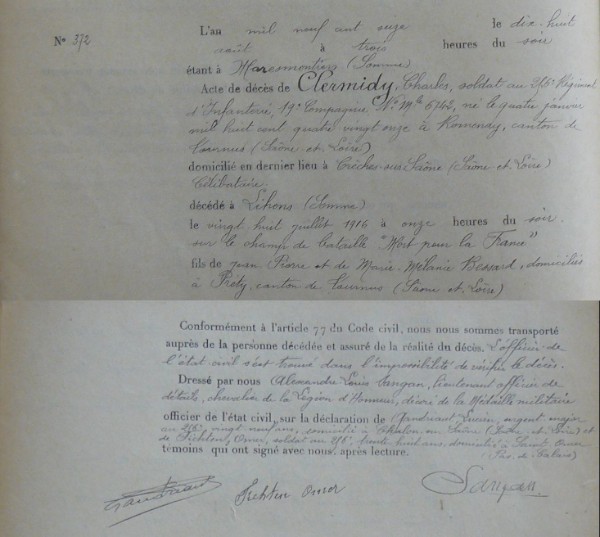 N° 372
L'an mil neuf cent onze le dix-huit
août à trois heures du soir
étant à Marcmontiers (Somme)
Acte de décès de Clermidy, Charles, soldat au 256e Régiment
d'Infanterie, 19e Compagnie N° Mle 6742, né le quatre janvier
mil huit cent quatre vingt onze à Romenay, canton de
Tournus (Saône et Loire)
domicilié en dernier lieu à Crèches-sur-Saône (Saône et Loire)
Célibataire
décédé à Lihons (Somme)
le vingt huit juillet 1916 à onze heures du soir
sur le champ de bataille "Mort pour la France"
fils de Jean Pierre et de Marie Mélanie Bessard, domiciliés
à Préty, canton de Tournus (Saône et Loire)
Conformément à l'article 77 du Code civil, nous nous sommes transporté
auprès de la personne décédée et assuré de la réalité du décès. L'officier de
l'état civil s'est trouvé dans l'impossibilité de vérifier le décès.
Dressé par nous Alexandre Louis Sangan, lieutenant officier de
détails, chevalier de la Légion d'Honneur, décoré de la Médaille militaire
officier de l'état civil, sur la déclaration de Lucien, sergent major
au 256e, vingt neuf ans, domicilié à Chalon sur Saône (Saône et Loire) et
de Omer, soldat au 256e, trente huit ans, domicilié à Saint Omer
(Pas de Calais)
témoins qui ont signé avec nous après lecture.
Omer
Sangan